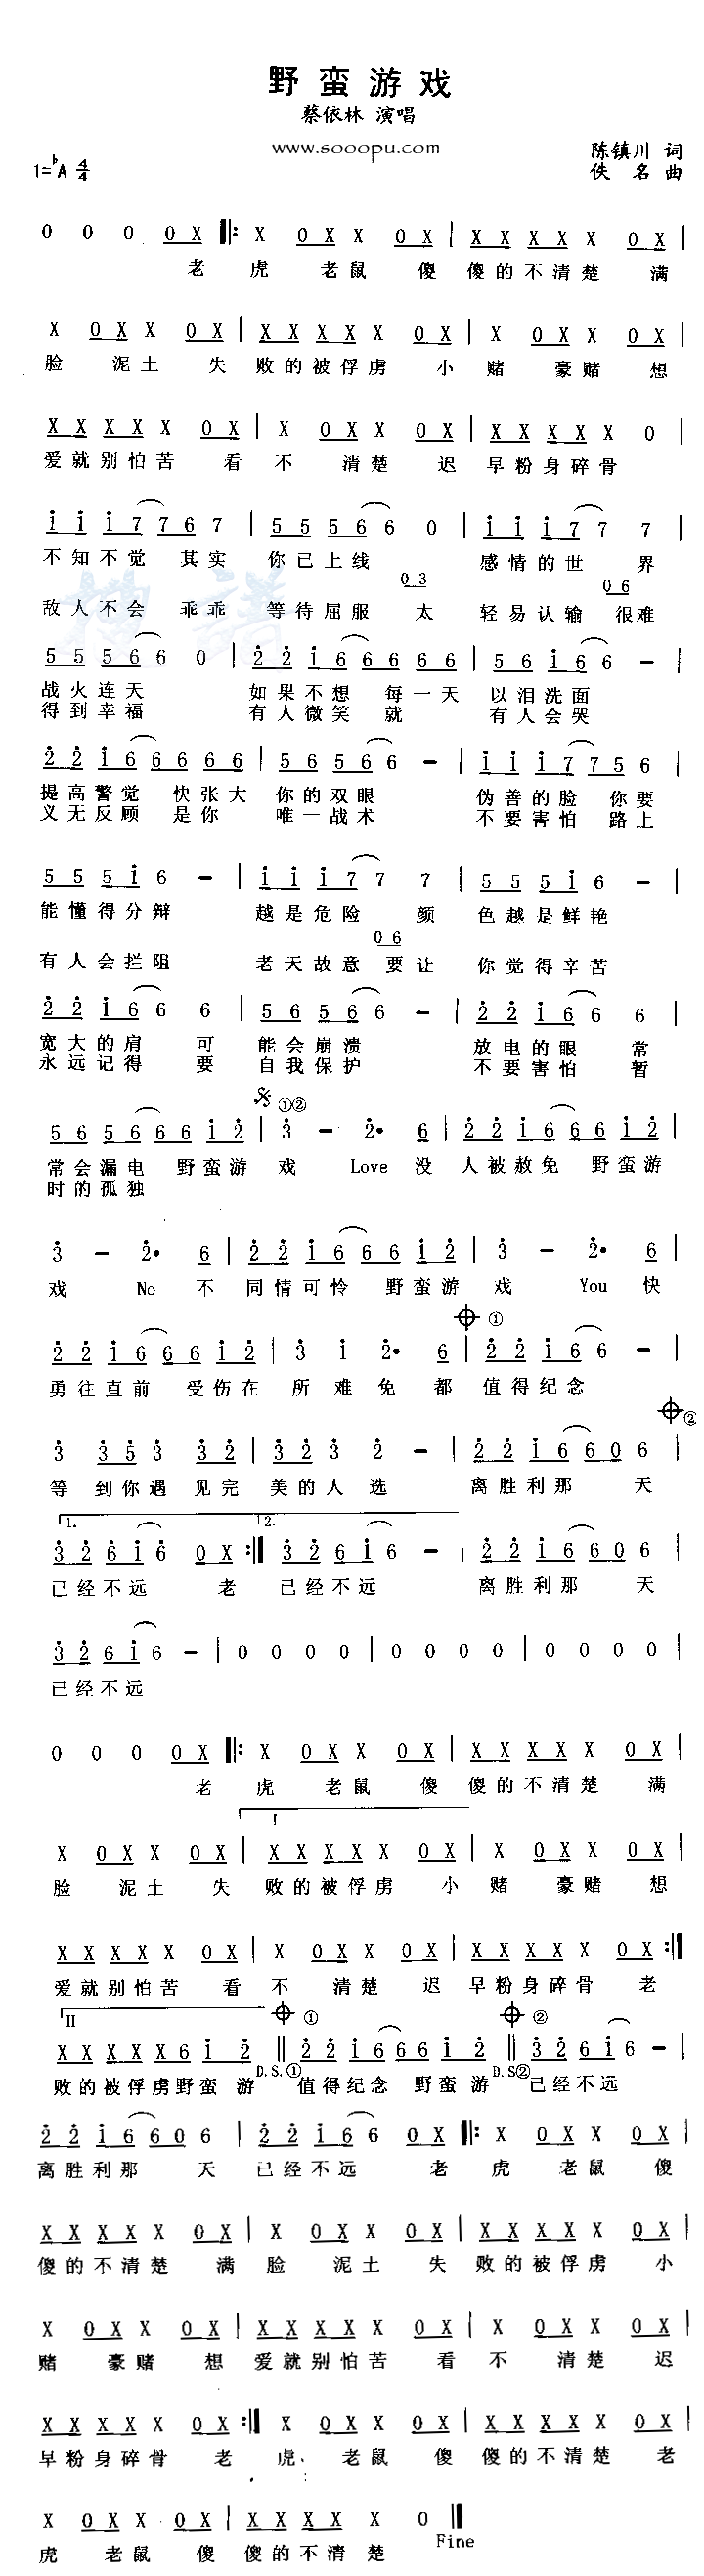 野蛮游戏
蔡依林 演唱
www.sooopu.com
陈镇川 词
1=♭A 4/4
佚 名 曲
0 0 0 0 X ‖: X 0 X X 0 X | X X X X X 0 X |
老 虎 老鼠 傻 傻的不清楚 满
X 0 X X 0 X | X X X X X 0 X | X 0 X X 0 X |
脸 泥土 失 败的被俘虏 小 赌 豪赌 想
X X X X X 0 X | X 0 X X 0 X | X X X X X 0 |
爱就别怕苦 看 不 清楚 迟 早粉身碎骨
i i i 7 7 6 7 | 5 5 5 6 6 0 | i i i 7 7 7 |
不知不觉 其实 你已上线 感情的世 界
0 3 0 6
敌人不会 乖乖 等待屈服 太 轻易认输 很难
5 5 5 6 6 0 | 2 2 i 6 6 6 6 6 | 5 6 i 6 6 — |
战火连天 如果不想 每一天 以泪洗面
得到幸福 有人微笑 就 有人会哭
2 2 i 6 6 6 6 6 | 5 6 5 6 6 — | i i i 7 7 5 6 |
提高警觉 快张大 你的双眼 伪善的脸 你要
义无反顾 是你 唯一战术 不要害怕 路上
5 5 5 i 6 — | i i i 7 7 7 | 5 5 5 i 6 — |
能懂得分辩 越是危险 颜 色越是鲜艳
0 6
有人会拦阻 老天故意 要让 你觉得辛苦
2 2 i 6 6 6 | 5 6 5 6 6 — | 2 2 i 6 6 6 |
宽大的肩 可 能会崩溃 放电的眼 常
永远记得 要 自我保护 不要害怕 暂
①②
5 6 5 6 6 6 i 2 | 3 — 2• 6 | 2 2 i 6 6 6 i 2 |
常会漏电 野蛮游 戏 Love 没 人被赦免 野蛮游
时的孤独
3 — 2• 6 | 2 2 i 6 6 6 i 2 | 3 — 2• 6 |
戏 No 不 同情可怜 野蛮游 戏 You 快
①
2 2 i 6 6 6 i 2 | 3 i 2• 6 | 2 2 i 6 6 — |
勇往直前 受伤在 所 难 免 都 值得纪念
②
3 3 5 3 3 2 | 3 2 3 2 — | 2 2 i 6 6 0 6 |
等 到你遇 见完 美的人选 离胜利那 天
1. 2.
3 2 6 i 6 0 X :‖ 3 2 6 i 6 — | 2 2 i 6 6 0 6 |
已经不远 老 已经不远 离胜利那 天
3 2 6 i 6 — | 0 0 0 0 | 0 0 0 0 | 0 0 0 0 |
已经不远
0 0 0 0 X ‖: X 0 X X 0 X | X X X X X 0 X |
老 虎 老鼠 傻 傻的不清楚 满
I
X 0 X X 0 X | X X X X X 0 X | X 0 X X 0 X |
脸 泥土 失 败的被俘虏 小 赌 豪赌 想
X X X X X 0 X | X 0 X X 0 X | X X X X X 0 X :‖
爱就别怕苦 看 不 清楚 迟 早粉身碎骨 老
II ① ②
X X X X X 6 i 2 ‖ 2 2 i 6 6 6 i 2 ‖ 3 2 6 i 6 — |
D.S.① D.S②
败的被俘虏野蛮 游 值得纪念 野蛮 游 已经不远
2 2 i 6 6 0 6 | 2 2 i 6 6 0 X ‖: X 0 X X 0 X |
离胜利那 天 已经不远 老 虎 老鼠 傻
X X X X X 0 X | X 0 X X 0 X | X X X X X 0 X |
傻的不清楚 满 脸 泥土 失 败的被俘虏 小
X 0 X X 0 X | X X X X X 0 X | X 0 X X 0 X |
赌 豪赌 想 爱就别怕苦 看 不 清楚 迟
X X X X X 0 X :‖ X 0 X X 0 X | X X X X X 0 X |
早粉身碎骨 老 虎 老鼠 傻 傻的不清楚 老
X 0 X X 0 X | X X X X X 0 ‖
Fine
虎 老鼠 傻 傻的不清楚